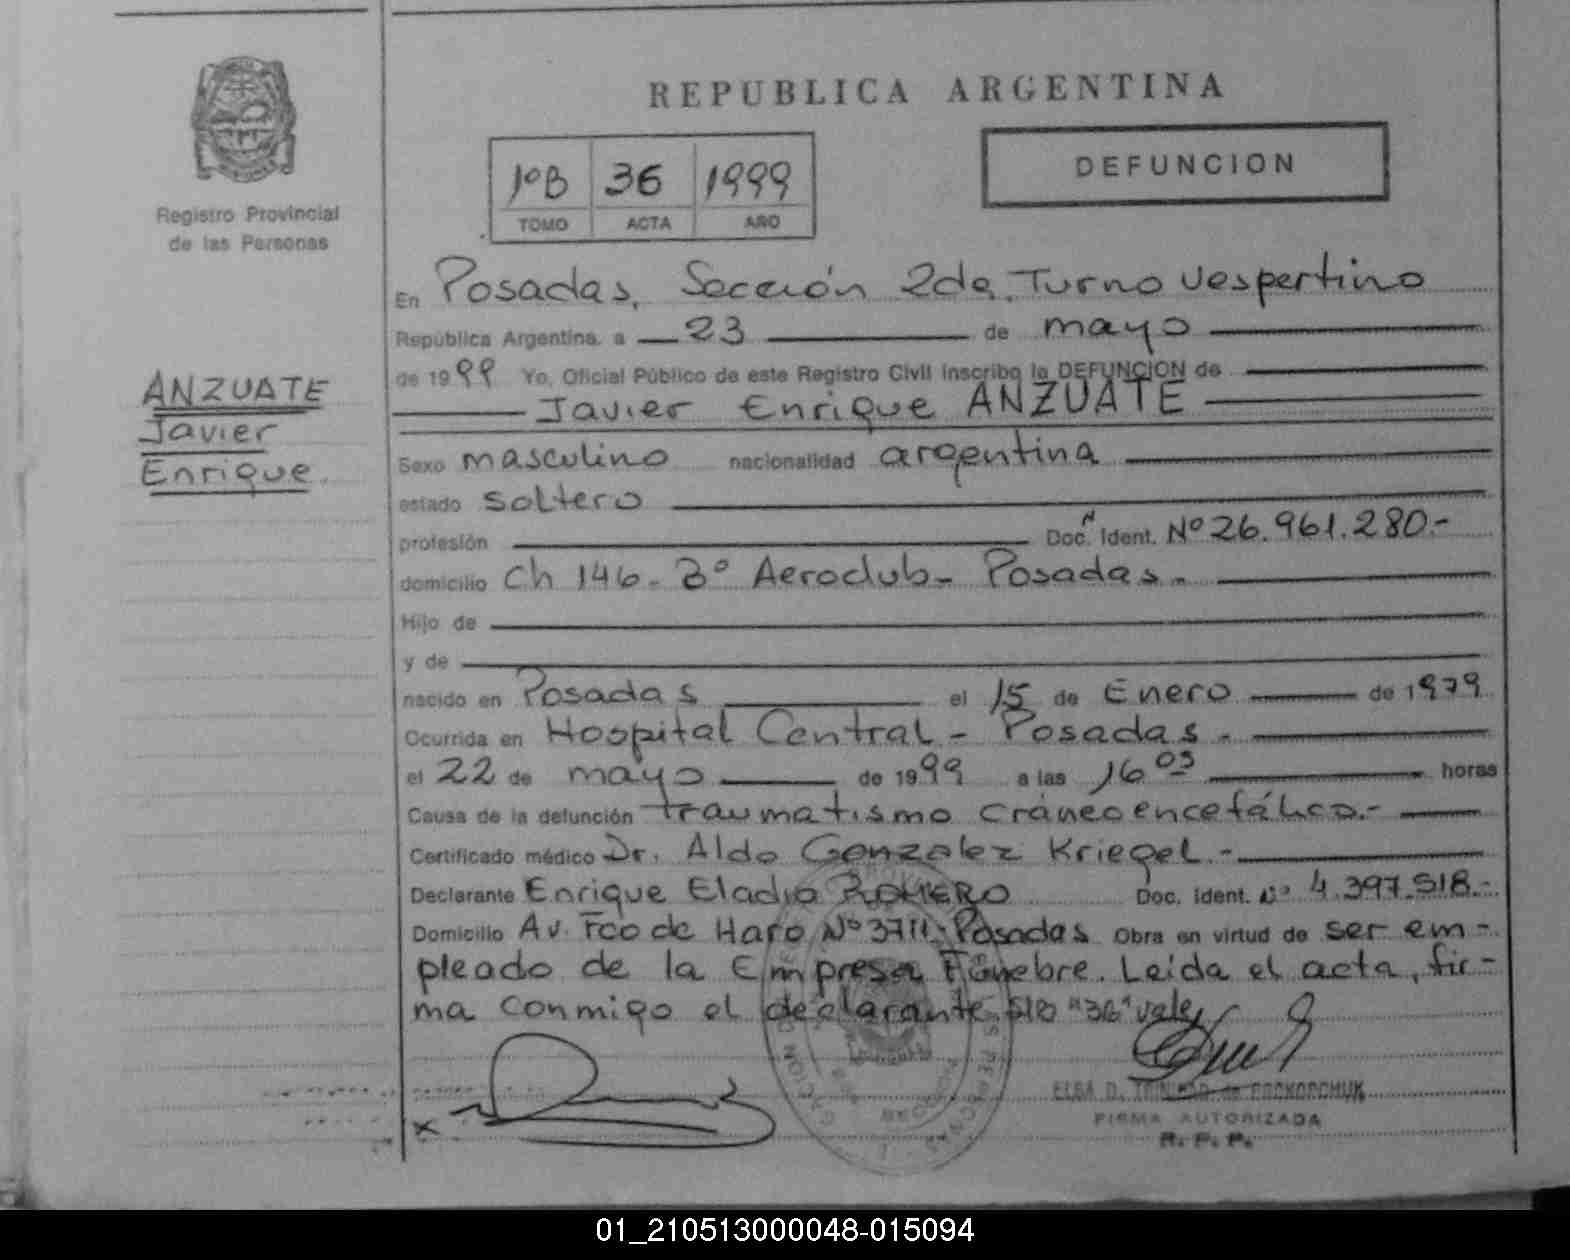 REPUBLICA ARGENTINA
1ºB 36 1999
TOMO ACTA AÑO
DEFUNCION
Registro Provincial
de las Personas
ANZUATE
Javier
Enrique.
En Posadas, Sección 2da. Turno Vespertino
República Argentina, a 23 de mayo
de 1999 Yo, Oficial Público de este Registro Civil inscribo la DEFUNCION de
Javier Enrique ANZUATE
Sexo masculino nacionalidad argentina
estado soltero
profesión Doc. Ident. Nº 26.961.280.-
domicilio Ch 146- Bº Aeroclub- Posadas.-
Hijo de
y de
nacido en Posadas el 15 de Enero de 1979
Ocurrida en Hospital Central - Posadas.-
el 22 de mayo de 1999 a las 16 03 horas
Causa de la defunción traumatismo cráneoencefálico.-
Certificado médico Dr. Aldo Gonzalez Kriegel.-
Declarante Enrique Eladio ROMERO Doc. Ident. Nº 4.397.518.-
Domicilio Av. Fco de Haro Nº 3711-Posadas Obra en virtud de ser em-
pleado de la Empresa Fúnebre. Leída el acta, fir-
ma conmigo el declarante S/B "36" vale
ELBA D. TRINIDAD de PROKOPCHUK
FIRMA AUTORIZADA
R. P. P.
01_210513000048-015094